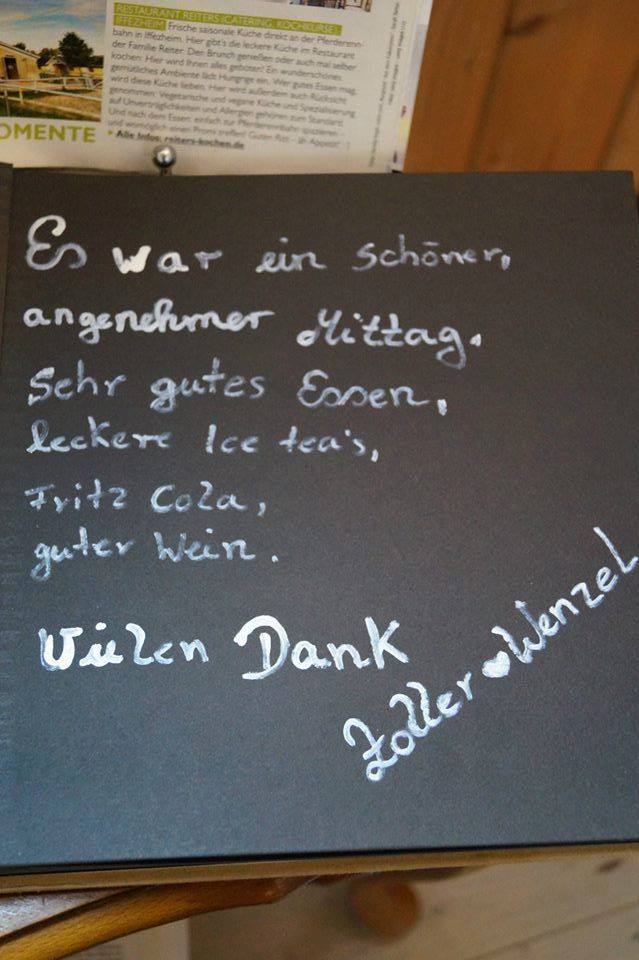 RESTAURANT REITERS (CATERING, KOCHKURSE),
IFFEZHEIM Frische saisonale Küche direkt an der Pferderenn-
bahn in Iffezheim. Hier gibt's die leckere Küche im Restaurant
der Familie Reiter. Den Brunch genießen oder auch mal selber
kochen: Hier wird Ihnen alles geboten! Ein wunderschönes,
gemütliches Ambiente lädt Hungrige ein. Wer gutes Essen mag,
wird diese Küche lieben. Hier wird außerdem auch Rücksicht
genommen: Vegetarische und vegane Küche und Spezialisierung
auf Unverträglichkeiten und Allergien gehören zum Standard.
Und nach dem Essen: einfach zur Pferderennbahn spazieren –
und womöglich einen Promi treffen! Guten Ritt – äh Appetit!
Alle Infos: reiters-kochen.de
OMENTE
Es war ein schöner,
angenehmer Mittag.
Sehr gutes Essen,
leckere Ice tea's,
Fritz Cola,
guter Wein.
Vielen Dank
Zoller ♥ Wenzel